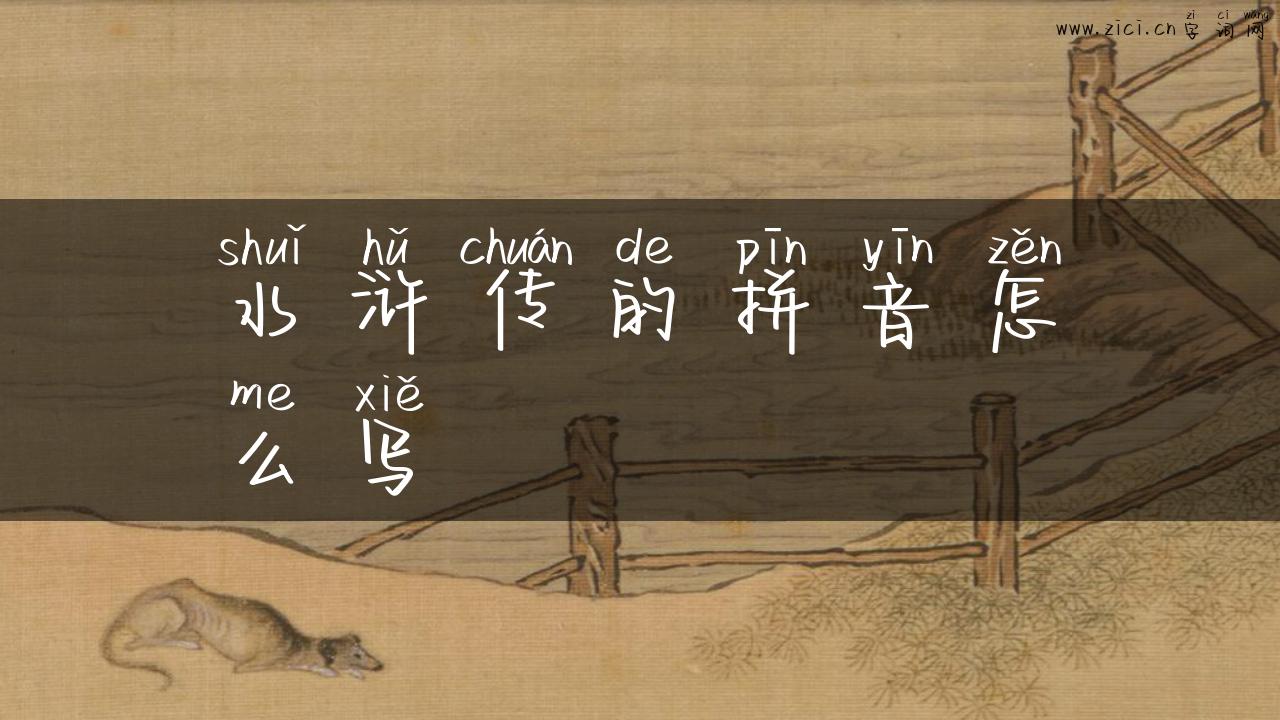 zì cí wǎng
www.zici.cn 字词网
shuǐ hǔ chuán de pīn yīn zěn
水浒传的拼音怎
me xiě
么写